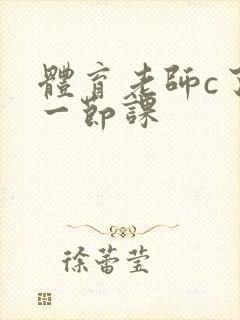 體育老師c了
一節課
徐蕾莹